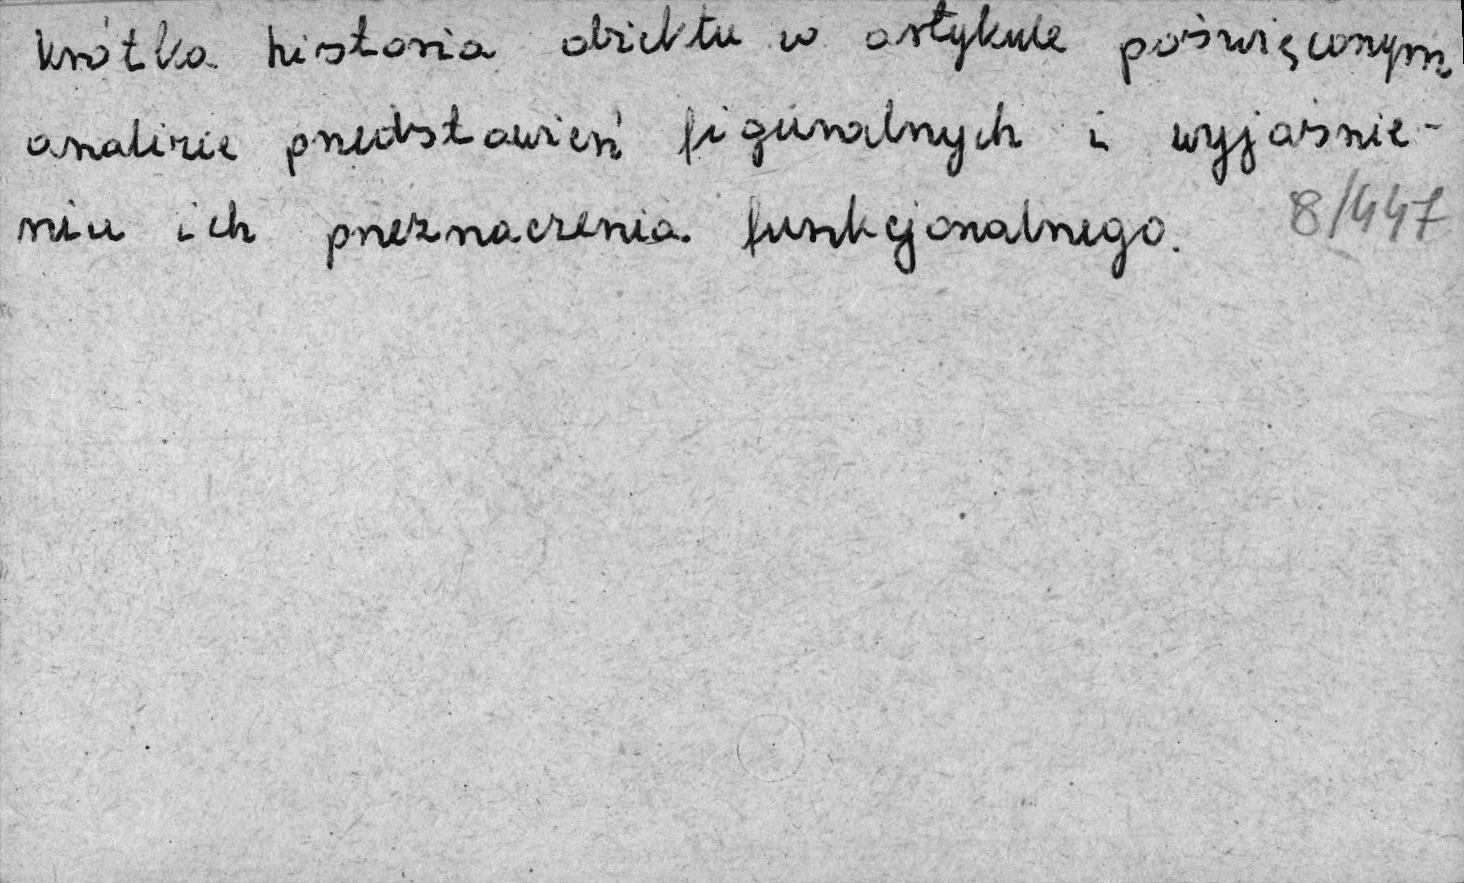 krótka historia obiektu w artykule poświęconym
analizie przedstawień figuralnych i wyjaśnie-
niu ich przeznaczenia funkcjonalnego.
8/447